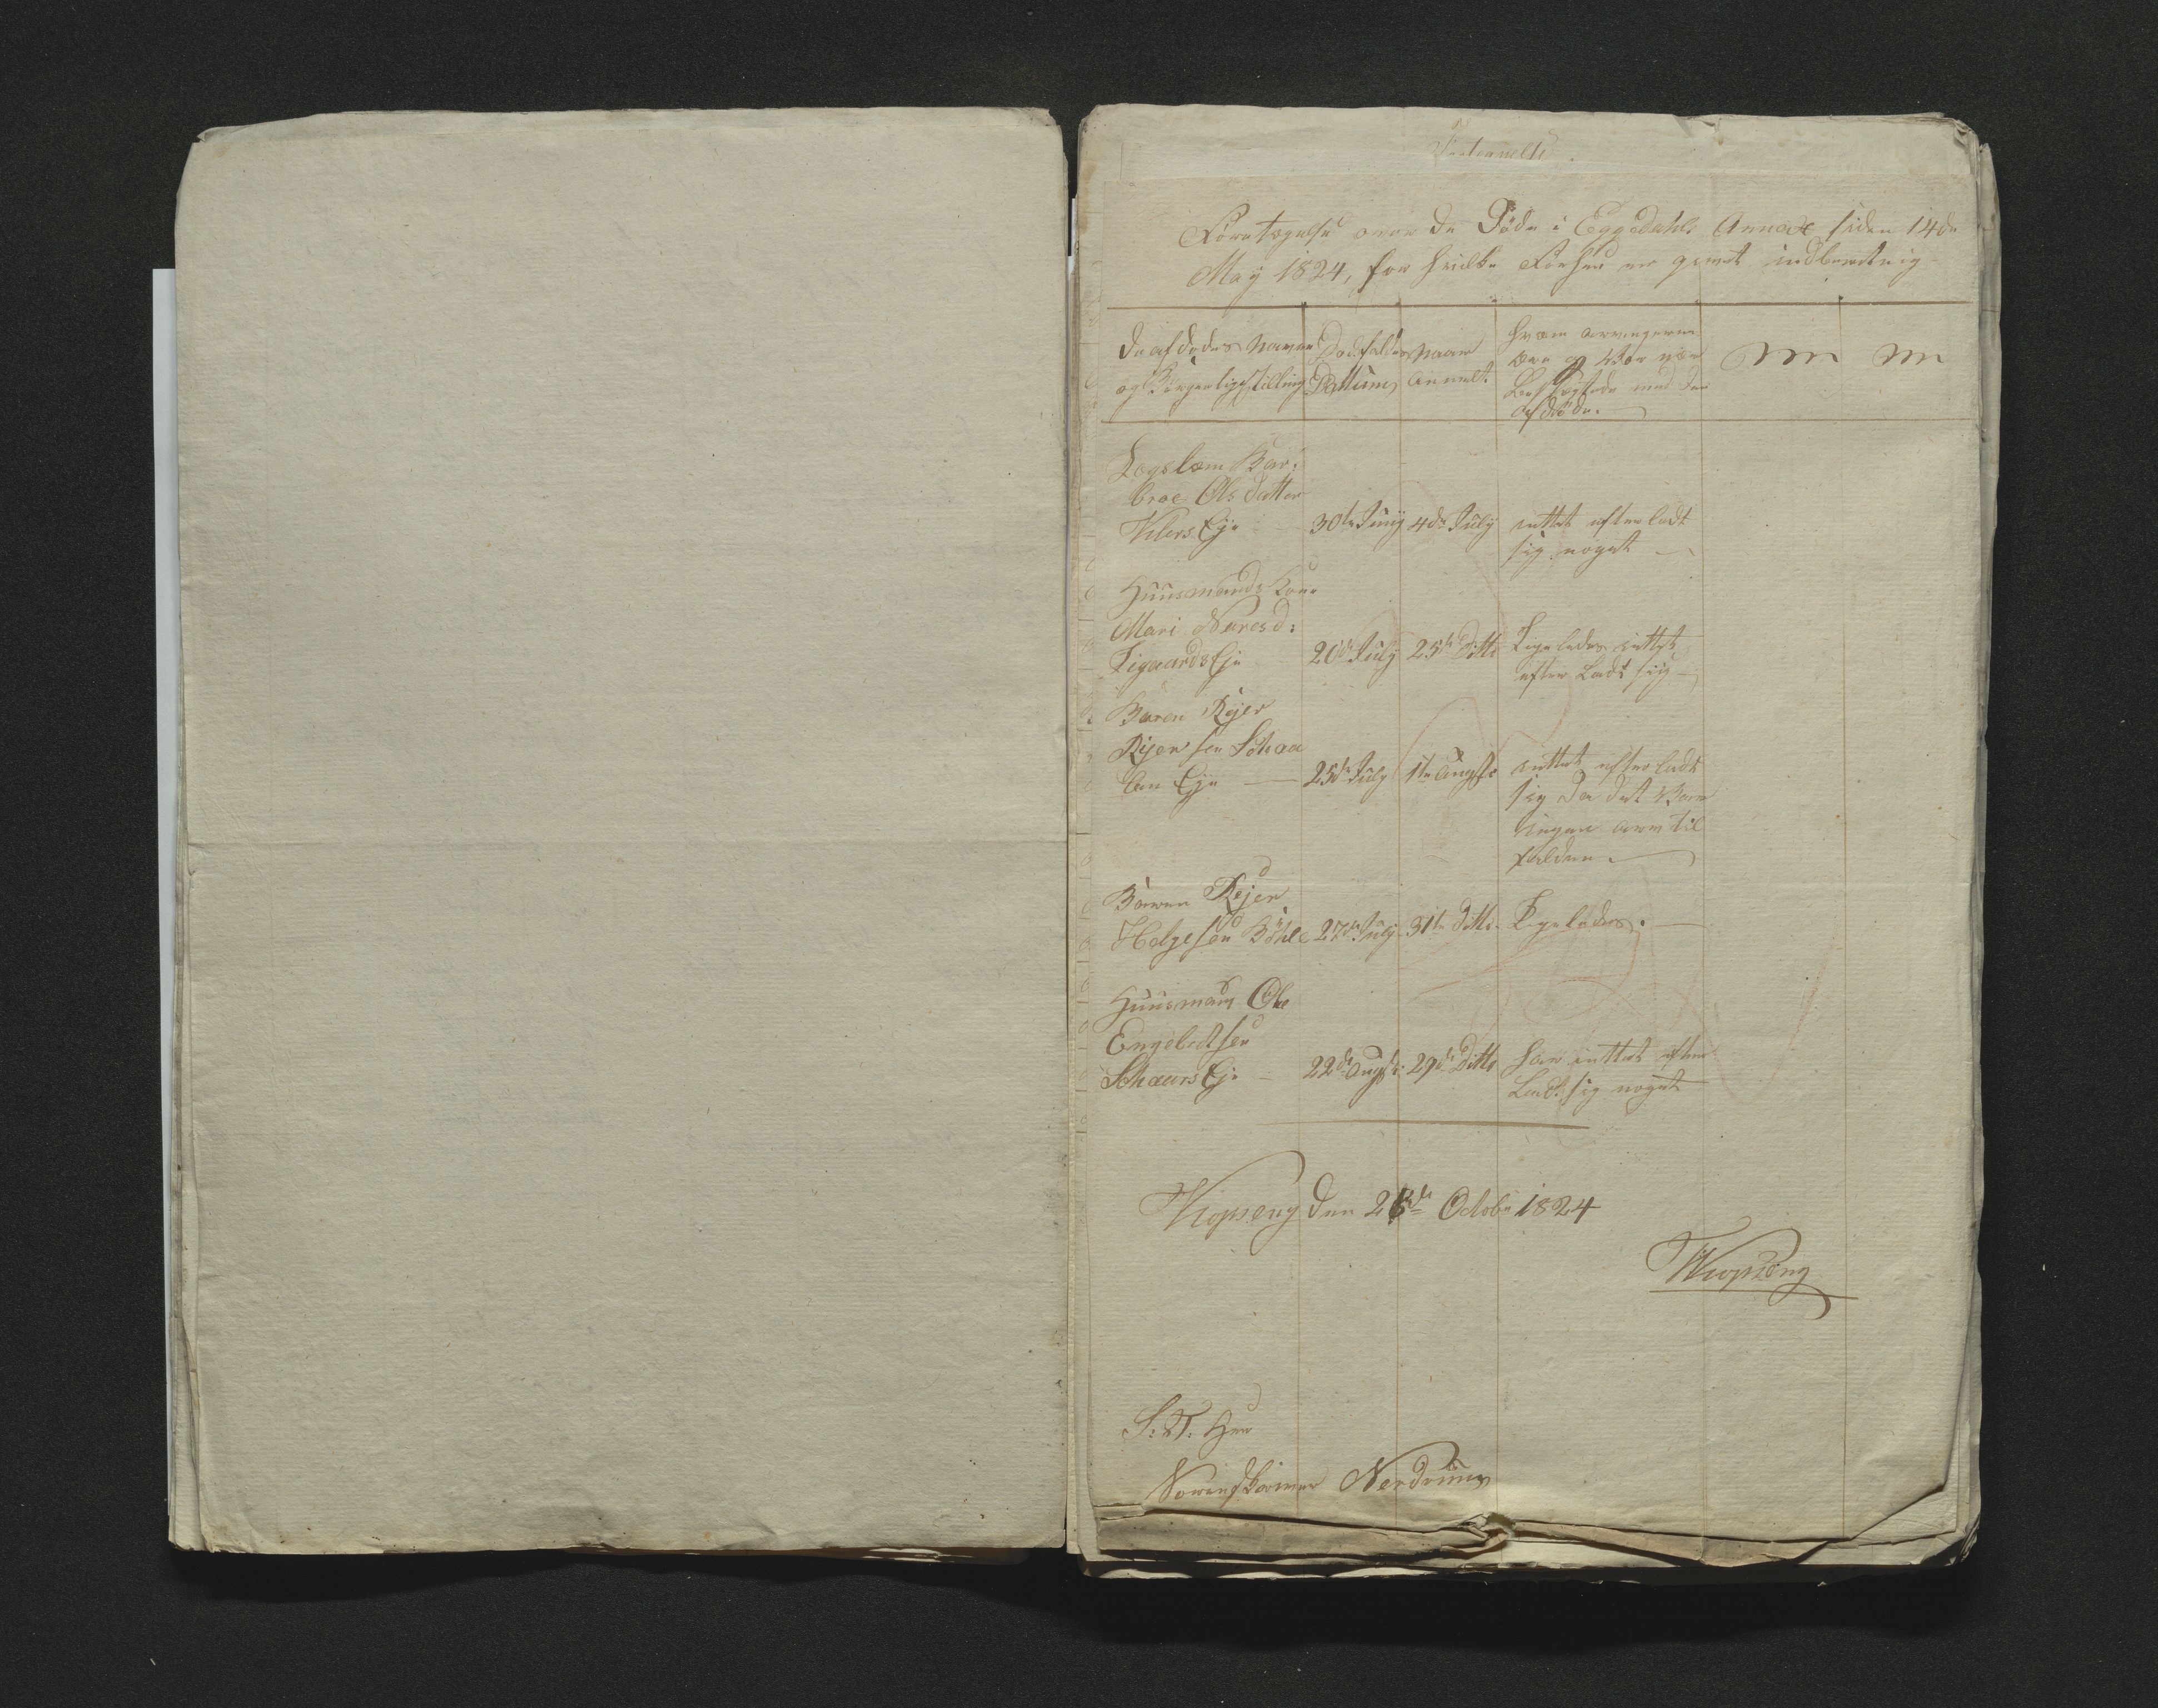 Foretegnelse over de Døde i Eggedahls Annex siden 14de
May 1824, for hvilke Forhen er givet indberetnig
De afdødes Navne
og Borgerlige stilling
Dødsfaldes
Dattum
Naar
anmelt
Hvem arvingerne
ere og hvor nær
Beslægtede med den
afdøde.
Lægslem Bar:
broe Ols datter
Vilers Eje
30te Juny
4de July
inttet efterladt
sig noget
Huusmands Kone
Mari Naresd:
Tigaards Eje
20de July
25de Ditto
Ligeledes inttet
efter Ladt sig
Baren Rejer
Rejersen Schaa
len Eje
25de July
1te Augst
inttet efterladt
sig da det Barn
ingen arv til
falden
Barnen Rejer
Helgesen Bøhle
27de July
31te Ditto
Ligeledes.
Huusmand Ole
Engebretsen
Schaars Eje
22de Augst:
29de Ditto
har inttet efter
Ladt sig noget
Kopseng den 28de Octobr 1824
TKopseng
S: T: Herr
Sorenskriver Nerdrum